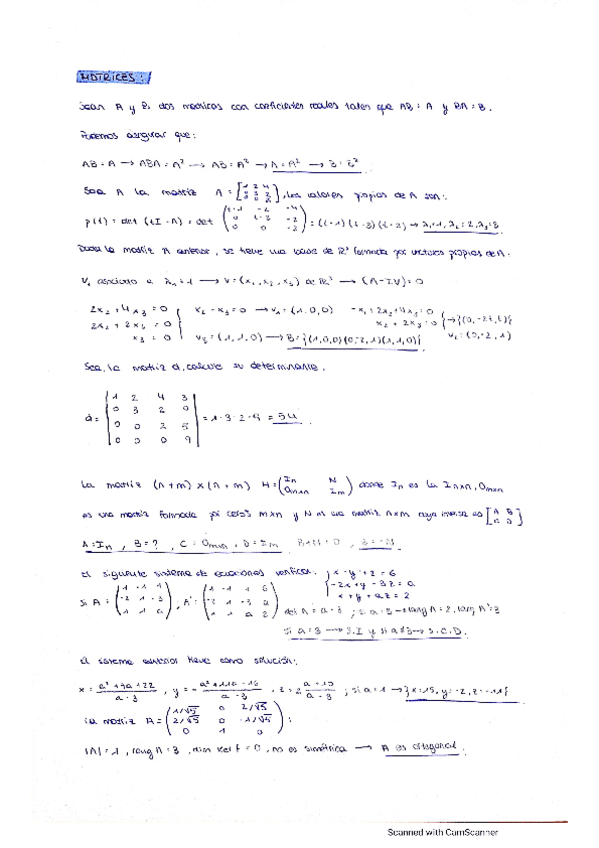 MATRICES:
Sean A y B dos matrices con coeficientes reales tales que AB = A y BA = B.
Podemos asegurar que:
AB = A → ABA = A² → AB = A² → A = A² → B = B²
Sea A la matriz A = [1 2 4; 0 3 2; 0 0 2], los valores propios de A son:
p(t) = det (tI - A) = det (t-1 -2 -4; 0 t-3 -2; 0 0 t-2) = (t-1)(t-3)(t-2) → λ₁=1, λ₂=2, λ₃=3
Dada la matriz A anterior, se tiene una base de R³ formada por vectores propios de A.
V₁ asociado a λ₁=1 → v=(x₁, x₂, x₃) de R³ → (A-IV)=0
2x₂+4x₃=0 x₂-x₃=0 → v₁=(1,0,0) -x₁+2x₂+4x₃=0
2x₂+2x₃=0 x₂+2x₃=0 → {(0,-2t,t)}
x₃=0 v₃=(1,1,0) → B={(1,0,0)(0,-2,1)(1,1,0)} v₂=(0,-2,1)
Sea la matriz d, calcule su determinante.
1 2 4 3
0 3 2 0
d= 0 0 2 5 = 1·3·2·9 = 54
0 0 0 9
La matriz (n+m)×(n+m) H=(Iₙ N; 0ₘₓₙ Iₘ) donde Iₙ es la Iₙₓₙ, 0ₘₓₙ
es una matriz formada por ceros m×n y N es una matriz n×m cuya inversa es [A B; C D]
A=Iₙ, B=?, C=0ₘₓₙ, D=Iₘ B+N=0, B=-N
El siguiente sistema de ecuaciones verifica: x-y+z=6
-2x+y-3z=a
x+y+az=2
Si A= (1 -1 1; -2 1 -3; 1 1 a), A'= (1 -1 1 6; -2 1 -3 a; 1 1 a 2)
det A = a-3; si a=3 → rang A=2, rang A'=3
si a=3 → S.I y si a≠3 → S.C.D.
El sistema anterior tiene como solución:
; si a=1 → {x=-15, y=-2, z=-11}
La matriz A= (1/√5 0 2/√5; 2/√5 0 -1/√5; 0 1 0):
|A|=1, rang A=3, dim Ker f=0, no es simétrica → A es ortogonal.
Scanned with CamScanner